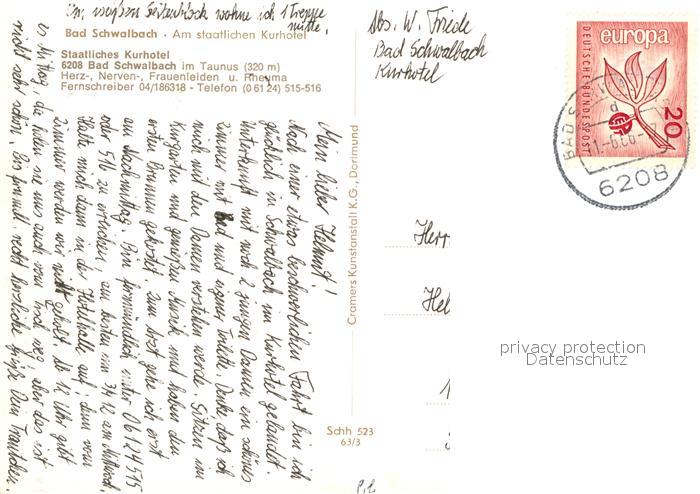 Im weißen Seitenblock wohne ich 1 Treppe
mitte.
Bad Schwalbach · Am staatlichen Kurhotel
Staatliches Kurhotel
6208 Bad Schwalbach im Taunus (320 m)
Herz-, Nerven-, Frauenleiden u. Rheuma
Fernschreiber 04/186318 - Telefon (0 61 24) 515-516
Abs. W. Friede
Bad Schwalbach
Kurhotel
europa
DEUTSCHE BUNDESPOST
20
BAD
d
6208
Mein lieber Helmut!
Nach einer etwas beschwerlichen Fahrt bin ich
glücklich in Schwalbach im Kurhotel gelandet.
Unterkunft mit noch 2 jungen Damen ein schönes
Zimmer mit Bad und eigener Toilette. Denke, daß ich
mich mit den Damen verstehen werde. Sitzen im
Kurgarten und genießen Musik und haben den
ersten Brunnen gekostet. Zum Arzt gehe ich erst
am Nachmittag. Bin fernmündlich unter 06124 515
oder 516 zu erreichen, am besten um 3/4 12 am Mittwoch,
Halte mich dann in der Hotelhalle auf, denn vom
Zimmer werden wir nicht geholt. Ab 12 Uhr gibt
es Mittag, da holen sie uns auch vom weg, aber das ist
nicht sehr schön. Bis recht herzliche Grüße Dein
Cramers Kunstanstalt K.G., Dortmund
Schh 523
63/3
Herr
Hel
privacy protection
Datenschutz